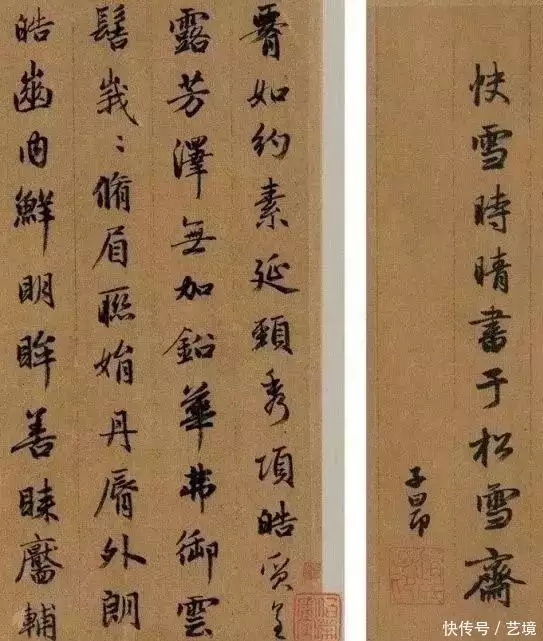 快雪時晴書于松雪齋
子昂
腰如約素延頸秀項皓質呈
露芳澤無加鉛華弗御雲
髻峩〻脩眉聯娟丹脣外朗
皓齒内鮮明眸善睞靨輔
快传号/艺境